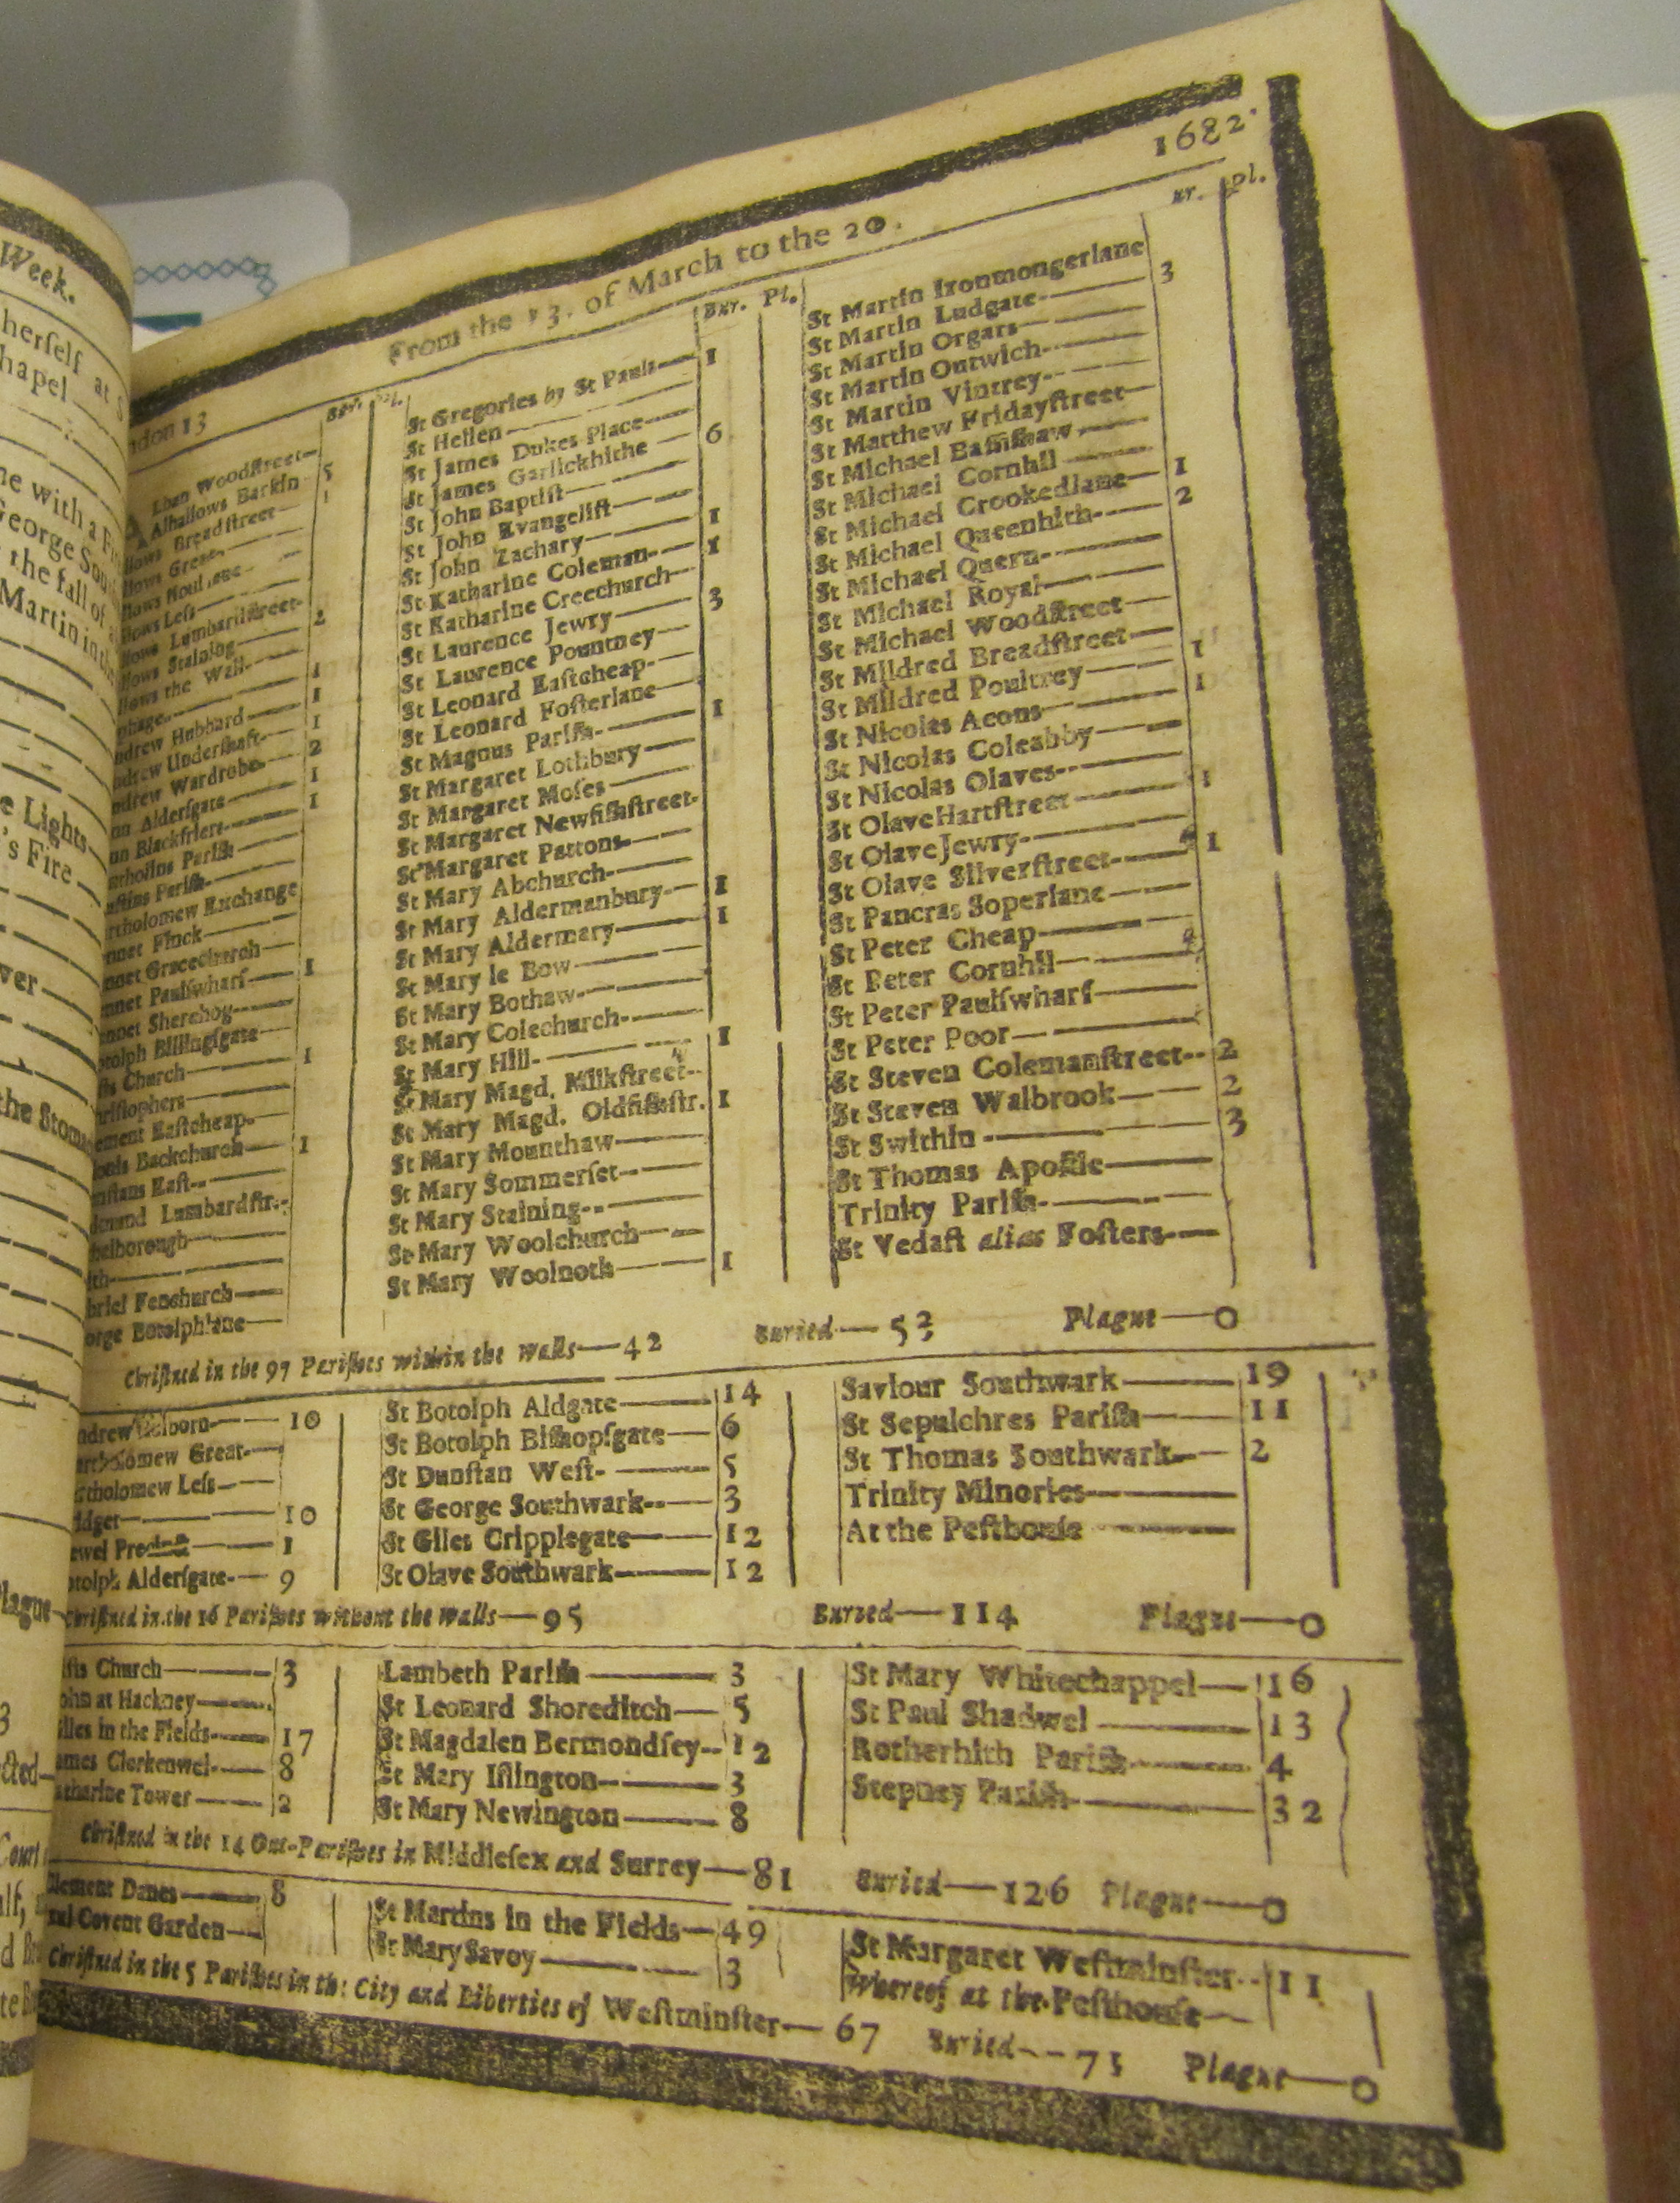 Week.
herself at S
hapel
ne with a
George Sou
the fall of
Martin in the
e Lights
's Fire
ver
the Stom
Plague
1682
From the 13. of March to the 20.
ndon 13
Bur. Pl.
Alban Woodſtreet
Alhallows Barkin 5
llows Breadſtreet 1
llows Great
llows Honilane
llows Leſs
llows Lumbardſtreet
llows Staining 2
llows the Wall
phage 1
ndrew Hubbard 1
ndrew Underſhaft 1
ndrew Wardrobe 2
nn Alderſgate 1
nn Blackfriers 1
artholins Pariſh
uſtins Pariſh
rtholomew Exchange
nnet Finck
nnet Gracechurch
nnet Paulſwharf 1
nnet Sherehog
otolph Billingſgate
ſts Church 1
riſtophers
ement Eaſtcheap
ionis Backchurch 1
nſtans Eaſt
dmund Lumbardſtr.
helborough
ith
briel Fenchurch
orge Botolphlane
Bur. Pl.
St Gregories by St Pauls 1
St Hellen
St James Dukes Place
St James Garlickhithe 6
St John Baptiſt
St John Evangeliſt
St John Zachary 1
St Katharine Coleman 1
St Katharine Creechurch
St Laurence Jewry 3
St Laurence Pountney
St Leonard Eaſtcheap
St Leonard Foſterlane
St Magnus Pariſh 1
St Margaret Lothbury
St Margaret Moſes
St Margaret Newfiſhſtreet
St Margaret Pattons
St Mary Abchurch
St Mary Aldermanbury 1
St Mary Aldermary 1
St Mary le Bow
St Mary Bothaw
St Mary Colechurch
St Mary Hill 1
St Mary Magd. Milkſtreet
St Mary Magd. Oldfiſhſtr. 1
St Mary Mounthaw
St Mary Sommerſet
St Mary Staining
St Mary Woolchurch
St Mary Woolnoth 1
Bur. Pl.
St Martin Ironmongerlane
St Martin Ludgate 3
St Martin Orgars
St Martin Outwich
St Martin Vintrey
St Matthew Fridayſtreet
St Michael Baſſiſhaw
St Michael Cornhil
St Michael Crookedlane 1
St Michael Queenhith 2
St Michael Quern
St Michael Royal
St Michael Woodſtreet
St Mildred Breadſtreet
St Mildred Poultrey 1
St Nicolas Acons 1
St Nicolas Coleabby
St Nicolas Olaves
St Olave Hartſtreet 1
St Olave Jewry
St Olave Silverſtreet 1
St Pancras Soperlane
St Peter Cheap
St Peter Cornhil
St Peter Paulſwharf
St Peter Poor
St Steven Colemanſtreet 2
St Steven Walbrook 2
St Swithin 3
St Thomas Apoſtle
Trinity Pariſh
St Vedaſt alias Foſters
Chriſtned in the 97 Pariſhes within the walls—42 Buried—53 Plague—0
ndrew Holborn 10
artholomew Great
rtholomew Leſs
idget 10
ewel Precinct 1
otolph Alderſgate 9
St Botolph Aldgate 14
St Botolph Biſhopſgate 6
St Dunſtan Weſt 5
St George Southwark 3
St Giles Cripplegate 12
St Olave Southwark 12
Saviour Southwark 19
St Sepulchres Pariſh 11
St Thomas Southwark 2
Trinity Minories
At the Peſthouſe
Chriſtned in the 16 Pariſhes without the walls—95 Buried—114 Plague—0
iſts Church 3
ohn at Hackney
illes in the Fields 17
ames Clerkenwel 8
atharine Tower 2
Lambeth Pariſh 3
St Leonard Shoreditch 5
St Magdalen Bermondſey 12
St Mary Iſlington 3
St Mary Newington 8
St Mary Whitechappel 16
St Paul Shadwel 13
Rotherhith Pariſh 4
Stepney Pariſh 32
Chriſtned in the 14 Out-Pariſhes in Middleſex and Surrey—81 Buried—126 Plague—0
Clement Danes 8
aul Covent Garden
St Martins in the Fields 49
St Mary Savoy 3
St Margaret Weſtminſter 11
Whereof at the Peſthouſe
Chriſtned in the 5 Pariſhes in the City and Liberties of Weſtminſter—67 Buried—71 Plague—0